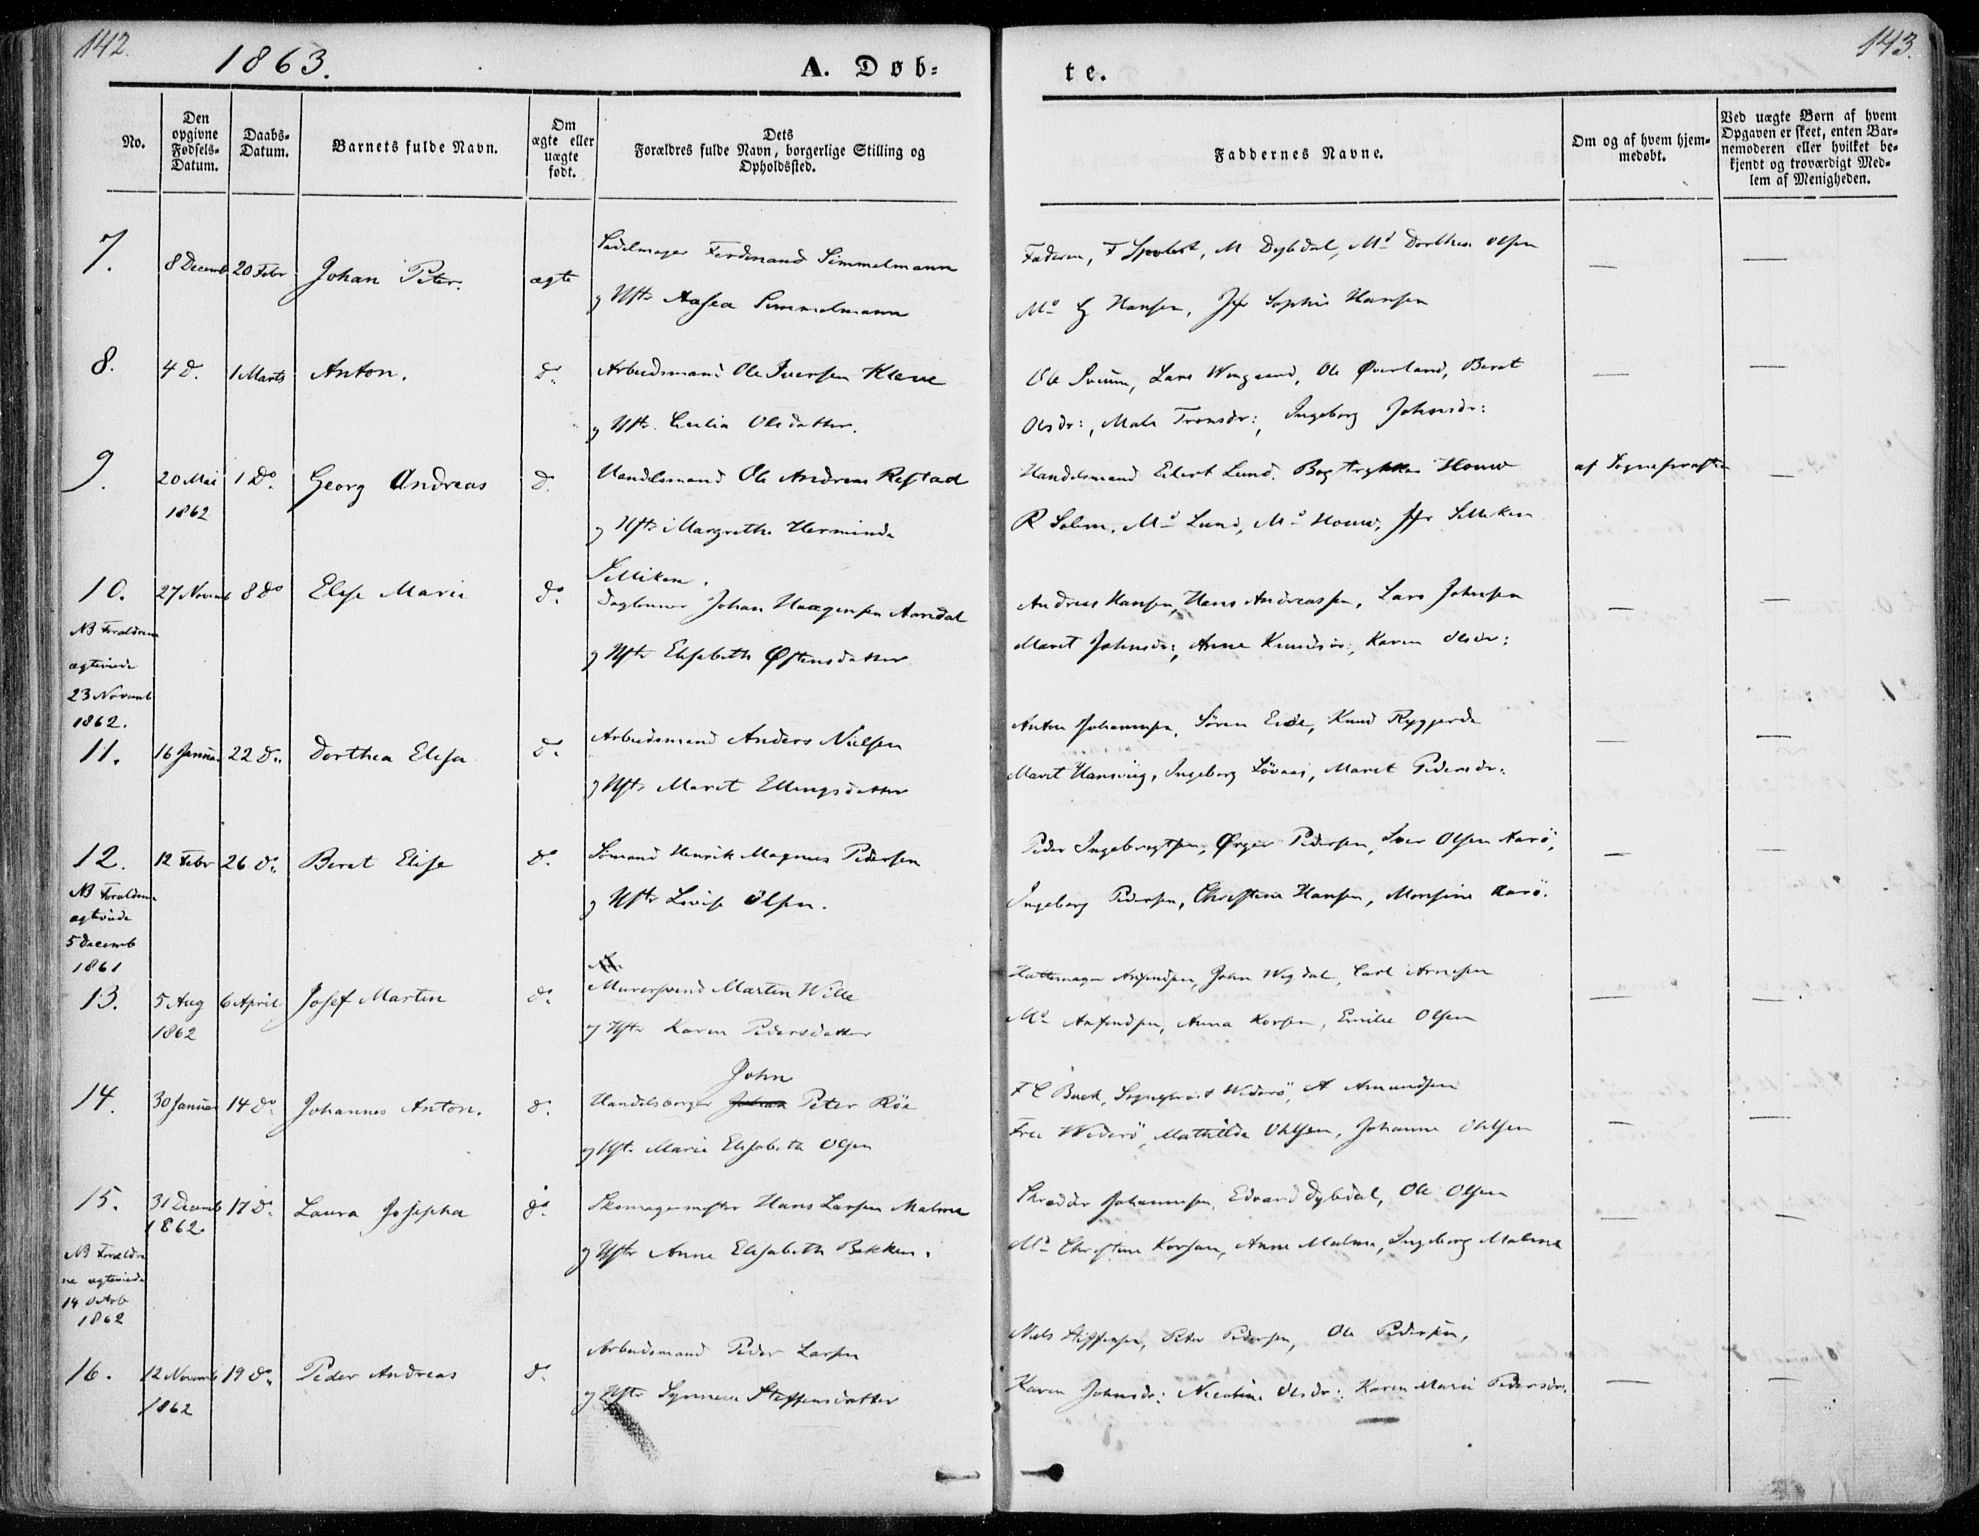 142.
1863.
A. Døb=
No.
Den opgivne Fødsels-Datum.
Daabs-Datum.
Barnets fulde Navn.
Om ægte eller uægte født.
Dets Forældres fulde Navn, borgerlige Stilling og Opholdssted.
7.
8 Decemb
20 Febr
Johan Peter.
ægte
Sadelmager Ferdinand Simmelmann
og Hstr Aasea Simmelmann
8.
4 d.
1 Marts
Anton.
do
Arbeidsmand Ole Iversen Kleve
og Hstr. Cecilia Olsdatter.
9.
20 Mai
1862
1 Do
Georg Andreas
d.
Handelsmand Ole Andreas Restad
og Hstr Margrethe Herminde
Selliken.
10.
27 Novemb
8 do
Elise Marie
do.
Dagleiner Johan Haagensen Aarndal
og Hstr Elisabeth Østensdatter
NB Foraldrene
ægteviede
23 Novemb
1862.
11.
16 Januar
22 do.
Dorthea Elisa
do.
Arbeidsmand Anders Nielsen
og Hstr Marit Ellingsdatter
12.
12 Febr
26 do.
Beret Elise
do.
Sømand Henrik Magnus Pedersen
og Hstr Lovise Olsen.
NB Foraldrene
ægteviede
5 Decemb
1861
13.
5 Aug
1862
6 April
Josef Martin
do.
Murersvend Martin Wille
og Hstr Karen Pedersdatter
14.
30 Januar
14 do.
Johannes Anton.
d.
John
Handelsborger Johan Peter Röe
og Hst. Marie Elisabeth Olsen
15.
31 Decemb
1862.
17 do.
Laura Josepha
do.
Skomagermester Hans Larsen Malme
og Hstr Anne Elisabeth Bekken.
NB Forældre
ne ægteviede
14 Octob
1862
16.
12 Novemb
1862
19 do.
Peder Andreas
do.
Arbeidsmand Peder Larsen
og Hstr Synneve Steffensdatter
143.
te.
Faddernes Navne.
Om og af hvem hjemmedøbt.
Ved uægte Børn af hvem
Opgaven er skeet, enten Bar-
nemoderen eller hvilket be-
kjendt og troværdigt Med-
lem af Menigheden.
Faderen, F , M Dybdal, Md Dorthea Olsen
Md Hansen, Jfr Sophie Hansen
Ole , Lars Wengaard, Ole Øverland, Beret
Olsdr:, Mali Tronsdr:, Ingeborg Johnsdr:
Handelsmand Eilert Lund. Bogtrykker Houw
R Solem, Md Lund, Md Houw, Jfr Selliken
af Sognepræsten
Andreas Hansen, Hans Andreassen, Lars Johnsen
Marit Johnsdr:, Anne Knudsdr:, Karen Olsdr:
Anton Johannesen, Sören Eide, Knud Ryggjerde
Marit Hansvig, Ingeborg Lövaas, Marit Pedersdr:
Peder Ingebregtsen, Pedersen, Iver Olsen Aarö,
Ingeborg Pedersen, Christine Hansen, Monsine Aarö.
Hattemager Arfindsen, John Wegdal, Carl Arnesen
Md Arfindsen, Anna Korsen, Emilie Olsen
F C Buck, Sogneprest Widerö, A Amundsen
Frue Widerö, Mathilde Ohlsen, Johanne Ohlsen
Skræder Johannesen, Edvard Dybdal, Ole Olsen
Md Christine Korsen, Anne Malme, Ingeborg Malme
Niels Steffensen, Peter Pedersen, Ole Pedersen,
Karen Johnsdr: Nicoline Olsdr: Karen Marie Pedersdr: